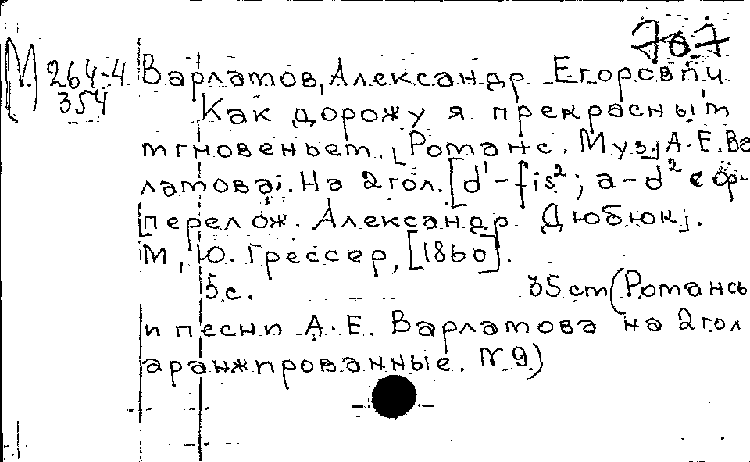 707
М 264-4 Варламов, Александр Егорович
354 Как дорожу я прекрасным
мгновеньем. [Романс. Муз.] А. Е. Ва
ламова. На 2 гол. [d¹-fis²; a-d² с ф-
[перелож. Александр Дюбюк].
М., Ю. Грессер, [1860].
5 с. 35 cm (Романсы
и песни А. Е. Варламова на 2 гол
аранжированные. № 9)